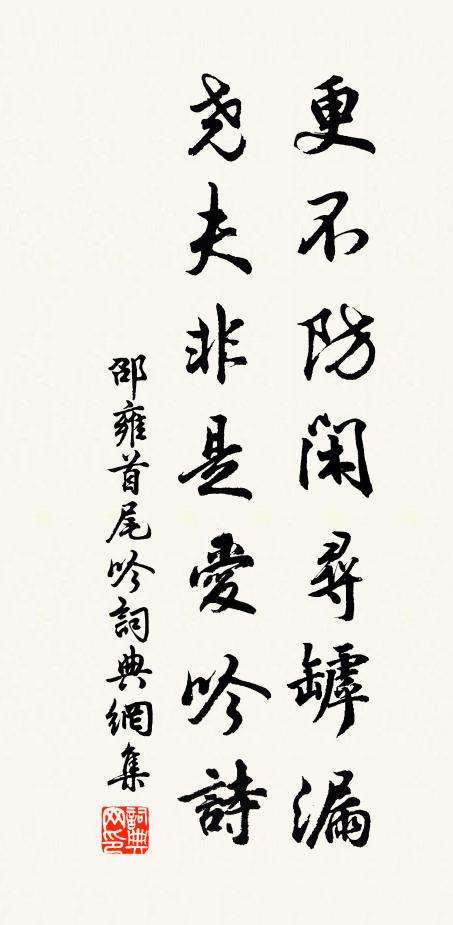 更不防閑尋罅漏
尧夫非是愛吟詩
邵雍首尾吟詞典網集
詞典网印